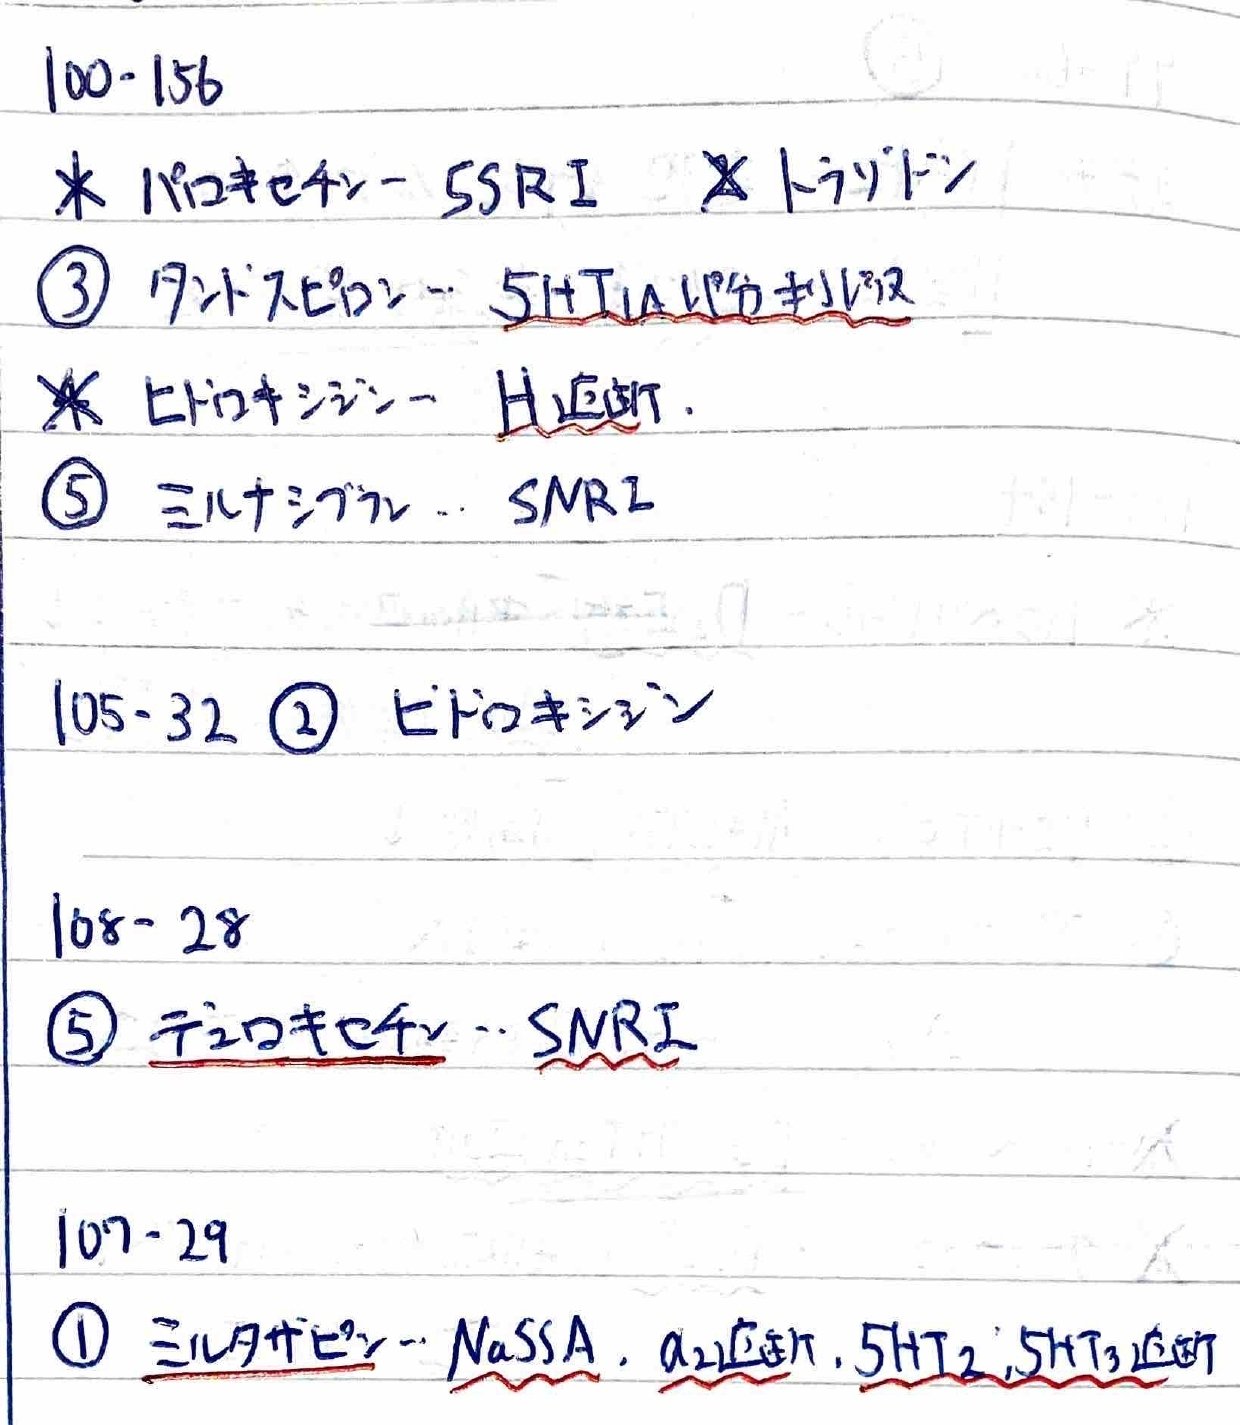 100-156
* パロキセチン - SSRI × トラゾドン
③ タンドスピロン … 5HT1A 部分刺激
* ヒドロキシジン - H1遮断.
⑤ ミルナシプラン … SNRI
105-32 ② ヒドロキシジン
108-28
⑤ デュロキセチン … SNRI
107-29
① ミルタザピン … NaSSA. α2遮断. 5HT2, 5HT3遮断